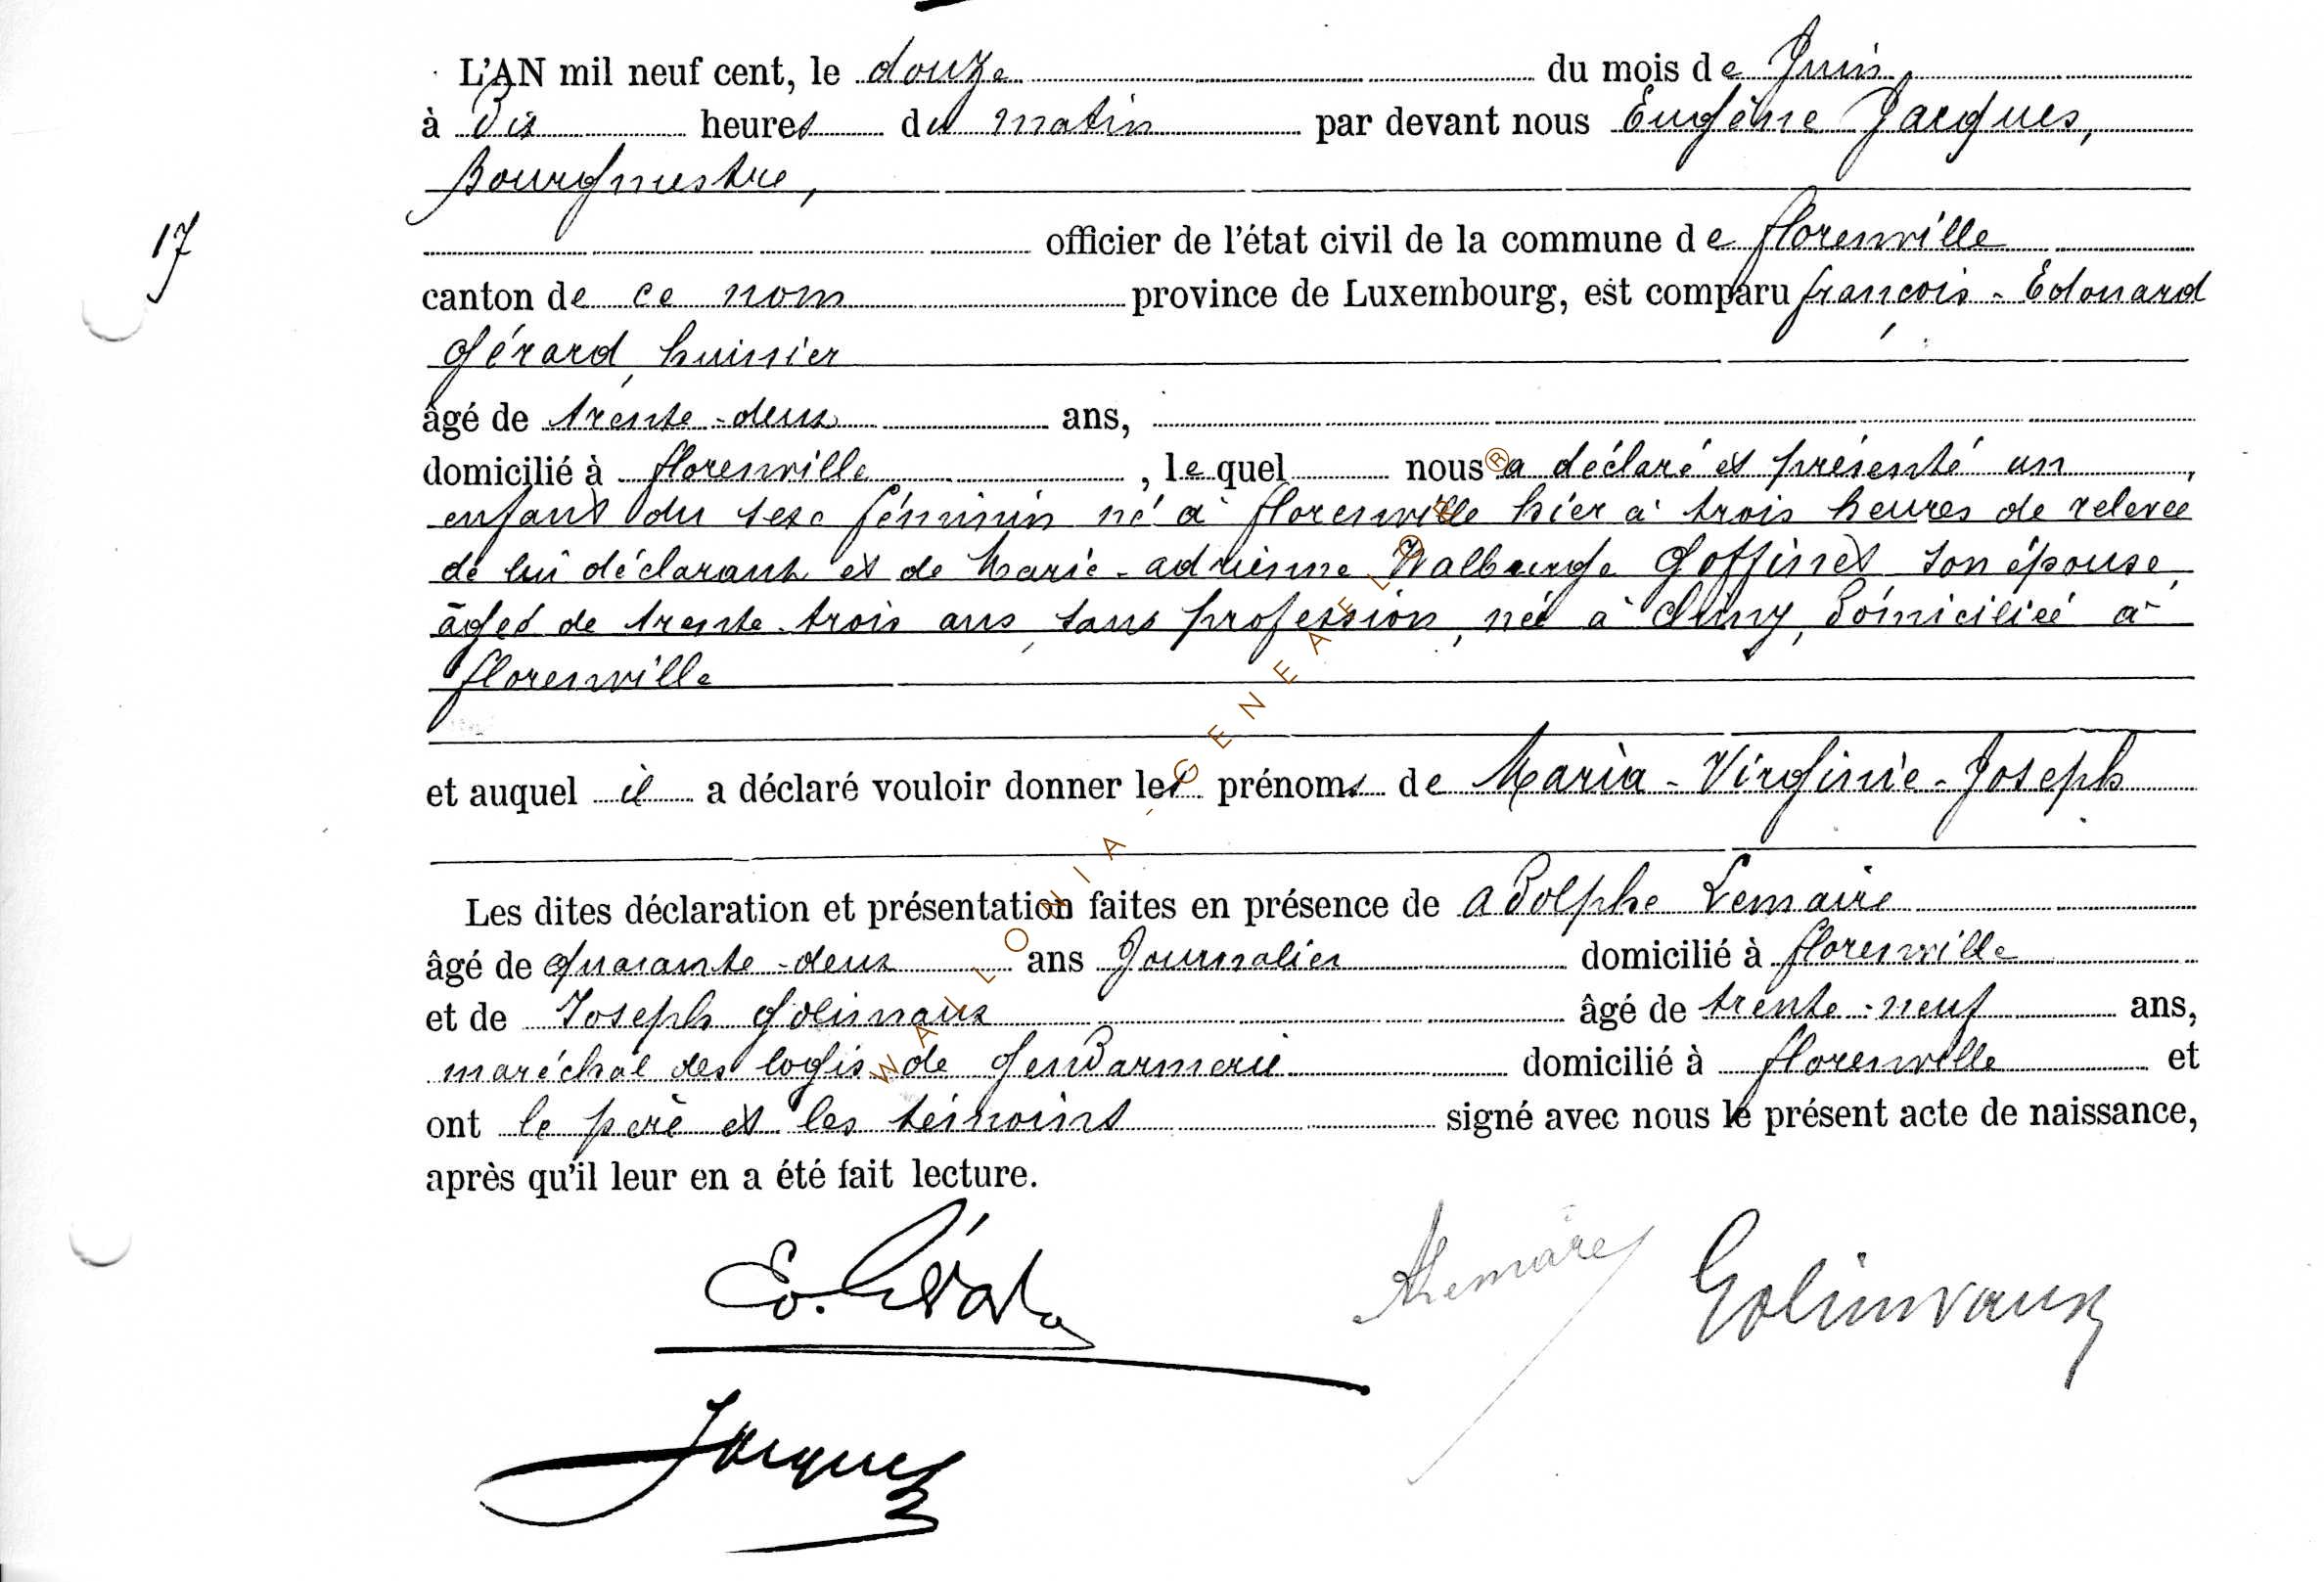 L'AN mil neuf cent, le douze du mois de Juin
à Dix heures du matin par devant nous Eugène Jacques,
Bourgmestre,
17
officier de l'état civil de la commune de florenville
canton de ce nom province de Luxembourg, est comparu françois-Edouard
Gérard, huissier
âgé de trente-deux ans,
domicilié à florenville, lequel nous a déclaré et présenté un
enfant du sexe féminin né à florenville hier à trois heures de relevée
de lui déclarant et de Marie-adrienne Walburge Goffinet son épouse,
âgée de trente-trois ans, sans profession, née à Chiny, Domiciliée à
florenville
et auquel il a déclaré vouloir donner les prénoms de Maria-Virginie-Joseph
Les dites déclaration et présentation faites en présence de aDolphe Lemaire
âgé de quarante-deux ans Journalier domicilié à florenville
et de Joseph Golinvaux âgé de trente-neuf ans,
maréchal des logis de GenDarmerie domicilié à florenville et
ont le père et les témoins signé avec nous le présent acte de naissance,
après qu'il leur en a été fait lecture.
Ed. Gérard
ALemaire
Golinvaux
Jacques
WALLONIA-GENEAFLOR®